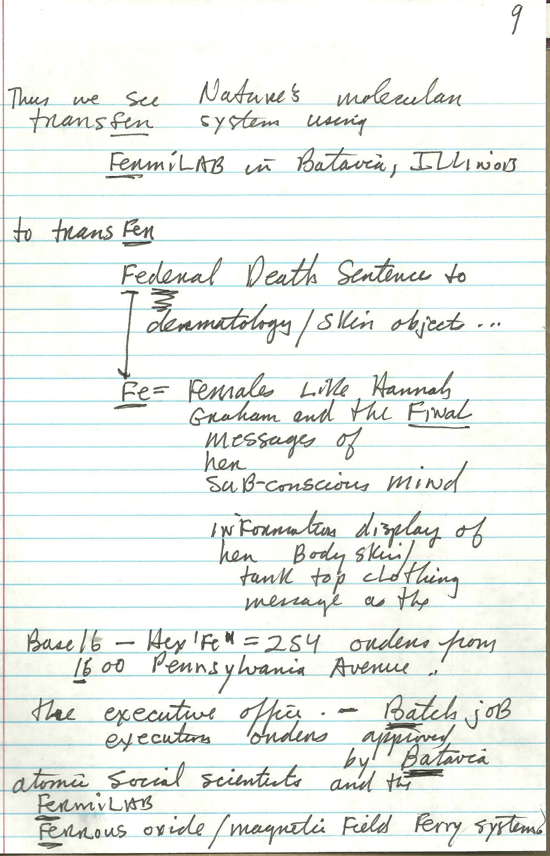 9
Thus we see Nature's molecular
transfer system using
FermiLAB in Batavia, ILLinois
to transfer
Federal Death Sentence to
dermatology / skin object...
Fe = Females Like Hannah
Graham and the Final
messages of
her
SUB-conscious mind
information display of
her Body skin/
tank top clothing
message as the
Base 16 - Hex "Fe" = 254 orders from
1600 Pennsylvania Avenue..
the executive office. - Batch job
execution orders approved
by Batavia
atomic social scientists and the
FermiLAB
Ferrous oxide / magnetic Field Ferry system